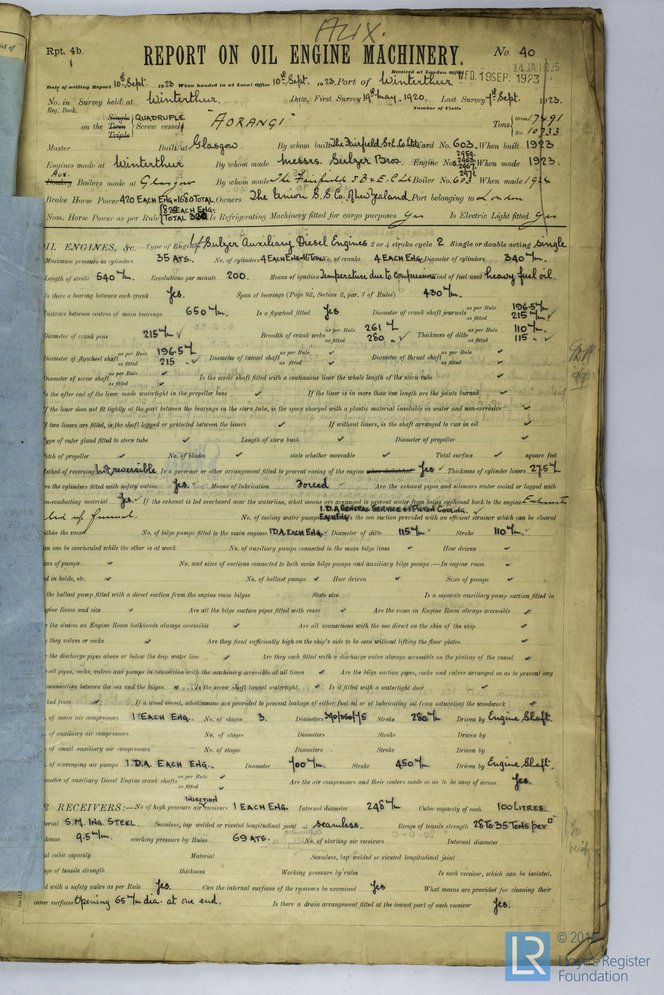 AUX.
Rpt. 4b.
REPORT ON OIL ENGINE MACHINERY.
No. 40
Received at London
WED. 19 SEP. 1923
Date of writing Report 10th Sept. 1923 When handed in at Local Office 10th Sept. 1923 Port of Winterthur
No. in Survey held at Winterthur. Date, First Survey 19th May, 1920. Last Survey 7th Sept. 1923.
Reg. Book. Number of Visits
on the Single Twin Triple QUADRUPLE Screw vessel "AORANGI" Tons Gross 17491 Net 10733
Master Built at Glasgow By whom built The Fairfield S & E. Co Ltd Yard No. 603. When built 1923
Engines made at Winterthur By whom made Messrs. Sulzer Bros. Engine Nos When made 1923.
Aux. Boilers made at Glasgow By whom made The Fairfield S B & E. C Ltd Boiler No. 603 When made 1924
Brake Horse Power 420 EACH ENG = 1680 TOTAL Owners The Union S.S. Co. of New Zealand, Port belonging to London
Nom. Horse Power as per Rule EACH ENG. TOTAL Is Refrigerating Machinery fitted for cargo purposes Yes Is Electric Light fitted Yes
OIL ENGINES, &c. Type of Engines 4 Sulzer Auxiliary Diesel Engines 2 or 4 stroke cycle 2 Single or double acting single
Maximum pressure in cylinders 35 ATS. No. of cylinders 4 EACH ENG = 16 TOTAL No. of cranks 4 EACH ENG. Diameter of cylinders 340 m/m.
Length of stroke 540 m/m. Revolutions per minute 200. Means of ignition Temperature due to compression Kind of fuel used heavy fuel oil.
Is there a bearing between each crank Yes. Span of bearings (Page 92, Section 2, par. 7 of Rules) 430 m/m.
Distance between centres of main bearings 650 m/m. Is a flywheel fitted Yes Diameter of crank shaft journals as per Rule 196.5 m/m as fitted 215 m/m ✓
Diameter of crank pins 215 m/m ✓ Breadth of crank webs as per Rule 261 m/m as fitted 280 ✓ Thickness of ditto as per Rule 110 m/m as fitted 115 ✓
Diameter of flywheel shaft as per Rule 196.5 m/m as fitted 215 ✓ Diameter of tunnel shaft as per Rule as fitted ✓ Diameter of thrust shaft as per Rule as fitted ✓
Diameter of screw shaft as per Rule as fitted ✓ Is the screw shaft fitted with a continuous liner the whole length of the stern tube ✓
Is the after end of the liner made watertight in the propeller boss ✓ If the liner is in more than one length are the joints burned ✓
If the liner does not fit tightly at the part between the bearings in the stern tube, is the space charged with a plastic material insoluble in water and non-corrosive ✓
If two liners are fitted, is the shaft lapped or protected between the liners ✓ If without liners, is the shaft arranged to run in oil ✓
Type of outer gland fitted to stern tube ✓ Length of stern bush ✓ Diameter of propeller ✓
Pitch of propeller ✓ No. of blades ✓ state whether moveable ✓ Total surface ✓ square feet
Method of reversing Irreversible Is a governor or other arrangement fitted to prevent racing of the engine Yes ✓ Thickness of cylinder liners 27.5 m/m
Are the cylinders fitted with safety valves Yes. ✓ Means of lubrication Forced Are the exhaust pipes and silencers water cooled or lagged with
non-conducting material Yes. ✓ If the exhaust is led overboard near the waterline, what means are arranged to prevent water from being syphoned back to the engine Exhausts
led up funnel. No. of cooling water pumps 1. D.A. GENERAL SERVICE & 1 PISTON COOLING. EACH ENG. Is the sea suction provided with an efficient strainer which can be cleared
within the vessel No. of bilge pumps fitted to the main engines 1 D.A. EACH ENG. Diameter of ditto 115 m/m Stroke 110 m/m
Can one be overhauled while the other is at work No. of auxiliary pumps connected to the main bilge lines ✓ How driven ✓
Sizes of pumps ✓ No. and sizes of suctions connected to both main bilge pumps and auxiliary bilge pumps :—In engine room ✓
and in holds, etc. ✓ No. of ballast pumps ✓ How driven ✓ Sizes of pumps ✓
the ballast pump fitted with a direct suction from the engine room bilges State size Is a separate auxiliary pump suction fitted in
Engine Room and size ✓ Are all the bilge suction pipes fitted with roses ✓ Are the roses in Engine Room always accessible ✓
the sluices on Engine Room bulkheads always accessible ✓ Are all connections with the sea direct on the skin of the ship ✓
they valves or cocks ✓ Are they fixed sufficiently high on the ship's side to be seen without lifting the floor plates ✓
the discharge pipes above or below the deep water line ✓ Are they each fitted with a discharge valve always accessible on the plating of the vessel ✓
all pipes, cocks, valves and pumps in connection with the machinery accessible at all times ✓ Are the bilge suction pipes, cocks and valves arranged so as to prevent any
communication between the sea and the bilges ✓ Is the screw shaft tunnel watertight ✓ Is it fitted with a watertight door ✓
worked from ✓ If a wood vessel, what means are provided to prevent leakage of either fuel oil or of lubricating oil from saturating the woodwork ✓
of main air compressors 1 EACH ENG. No. of stages 3. Diameters Stroke 280 m/m Driven by Engine Shaft.
of auxiliary air compressors No. of stages Diameters Stroke Driven by
of small auxiliary air compressors No. of stages Diameters Stroke Driven by
of scavenging air pumps 1. D.A. EACH ENG. Diameter 700 m/m. Stroke 450 m/m Driven by Engine Shaft.
Diameter of auxiliary Diesel Engine crank shafts as per Rule as fitted Are the air compressors and their coolers made so as to be easy of access Yes.
RECEIVERS:—No of high pressure INJECTION air receivers 1 EACH ENG. Internal diameter 248 m/m Cubic capacity of each 100 LITRES.
Material S.M. ING. STEEL. Seamless, lap welded or riveted longitudinal joint seamless. Range of tensile strength 28 TO 35 TONS per □"
thickness 9.5 m/m. working pressure by Rules 69 ATS. No. of starting air receivers Internal diameter
Total cubic capacity Material Seamless, lap welded or riveted longitudinal joint
Range of tensile strength thickness Working pressure by rules Is each receiver, which can be isolated,
fitted with a safety valve as per Rule Yes. Can the internal surfaces of the receivers be examined Yes What means are provided for cleaning their
inner surfaces Opening 65 m/m dia. at one end. Is there a drain arrangement fitted at the lowest part of each receiver Yes.
LR
© 201
Lloyd's Register
Foundation